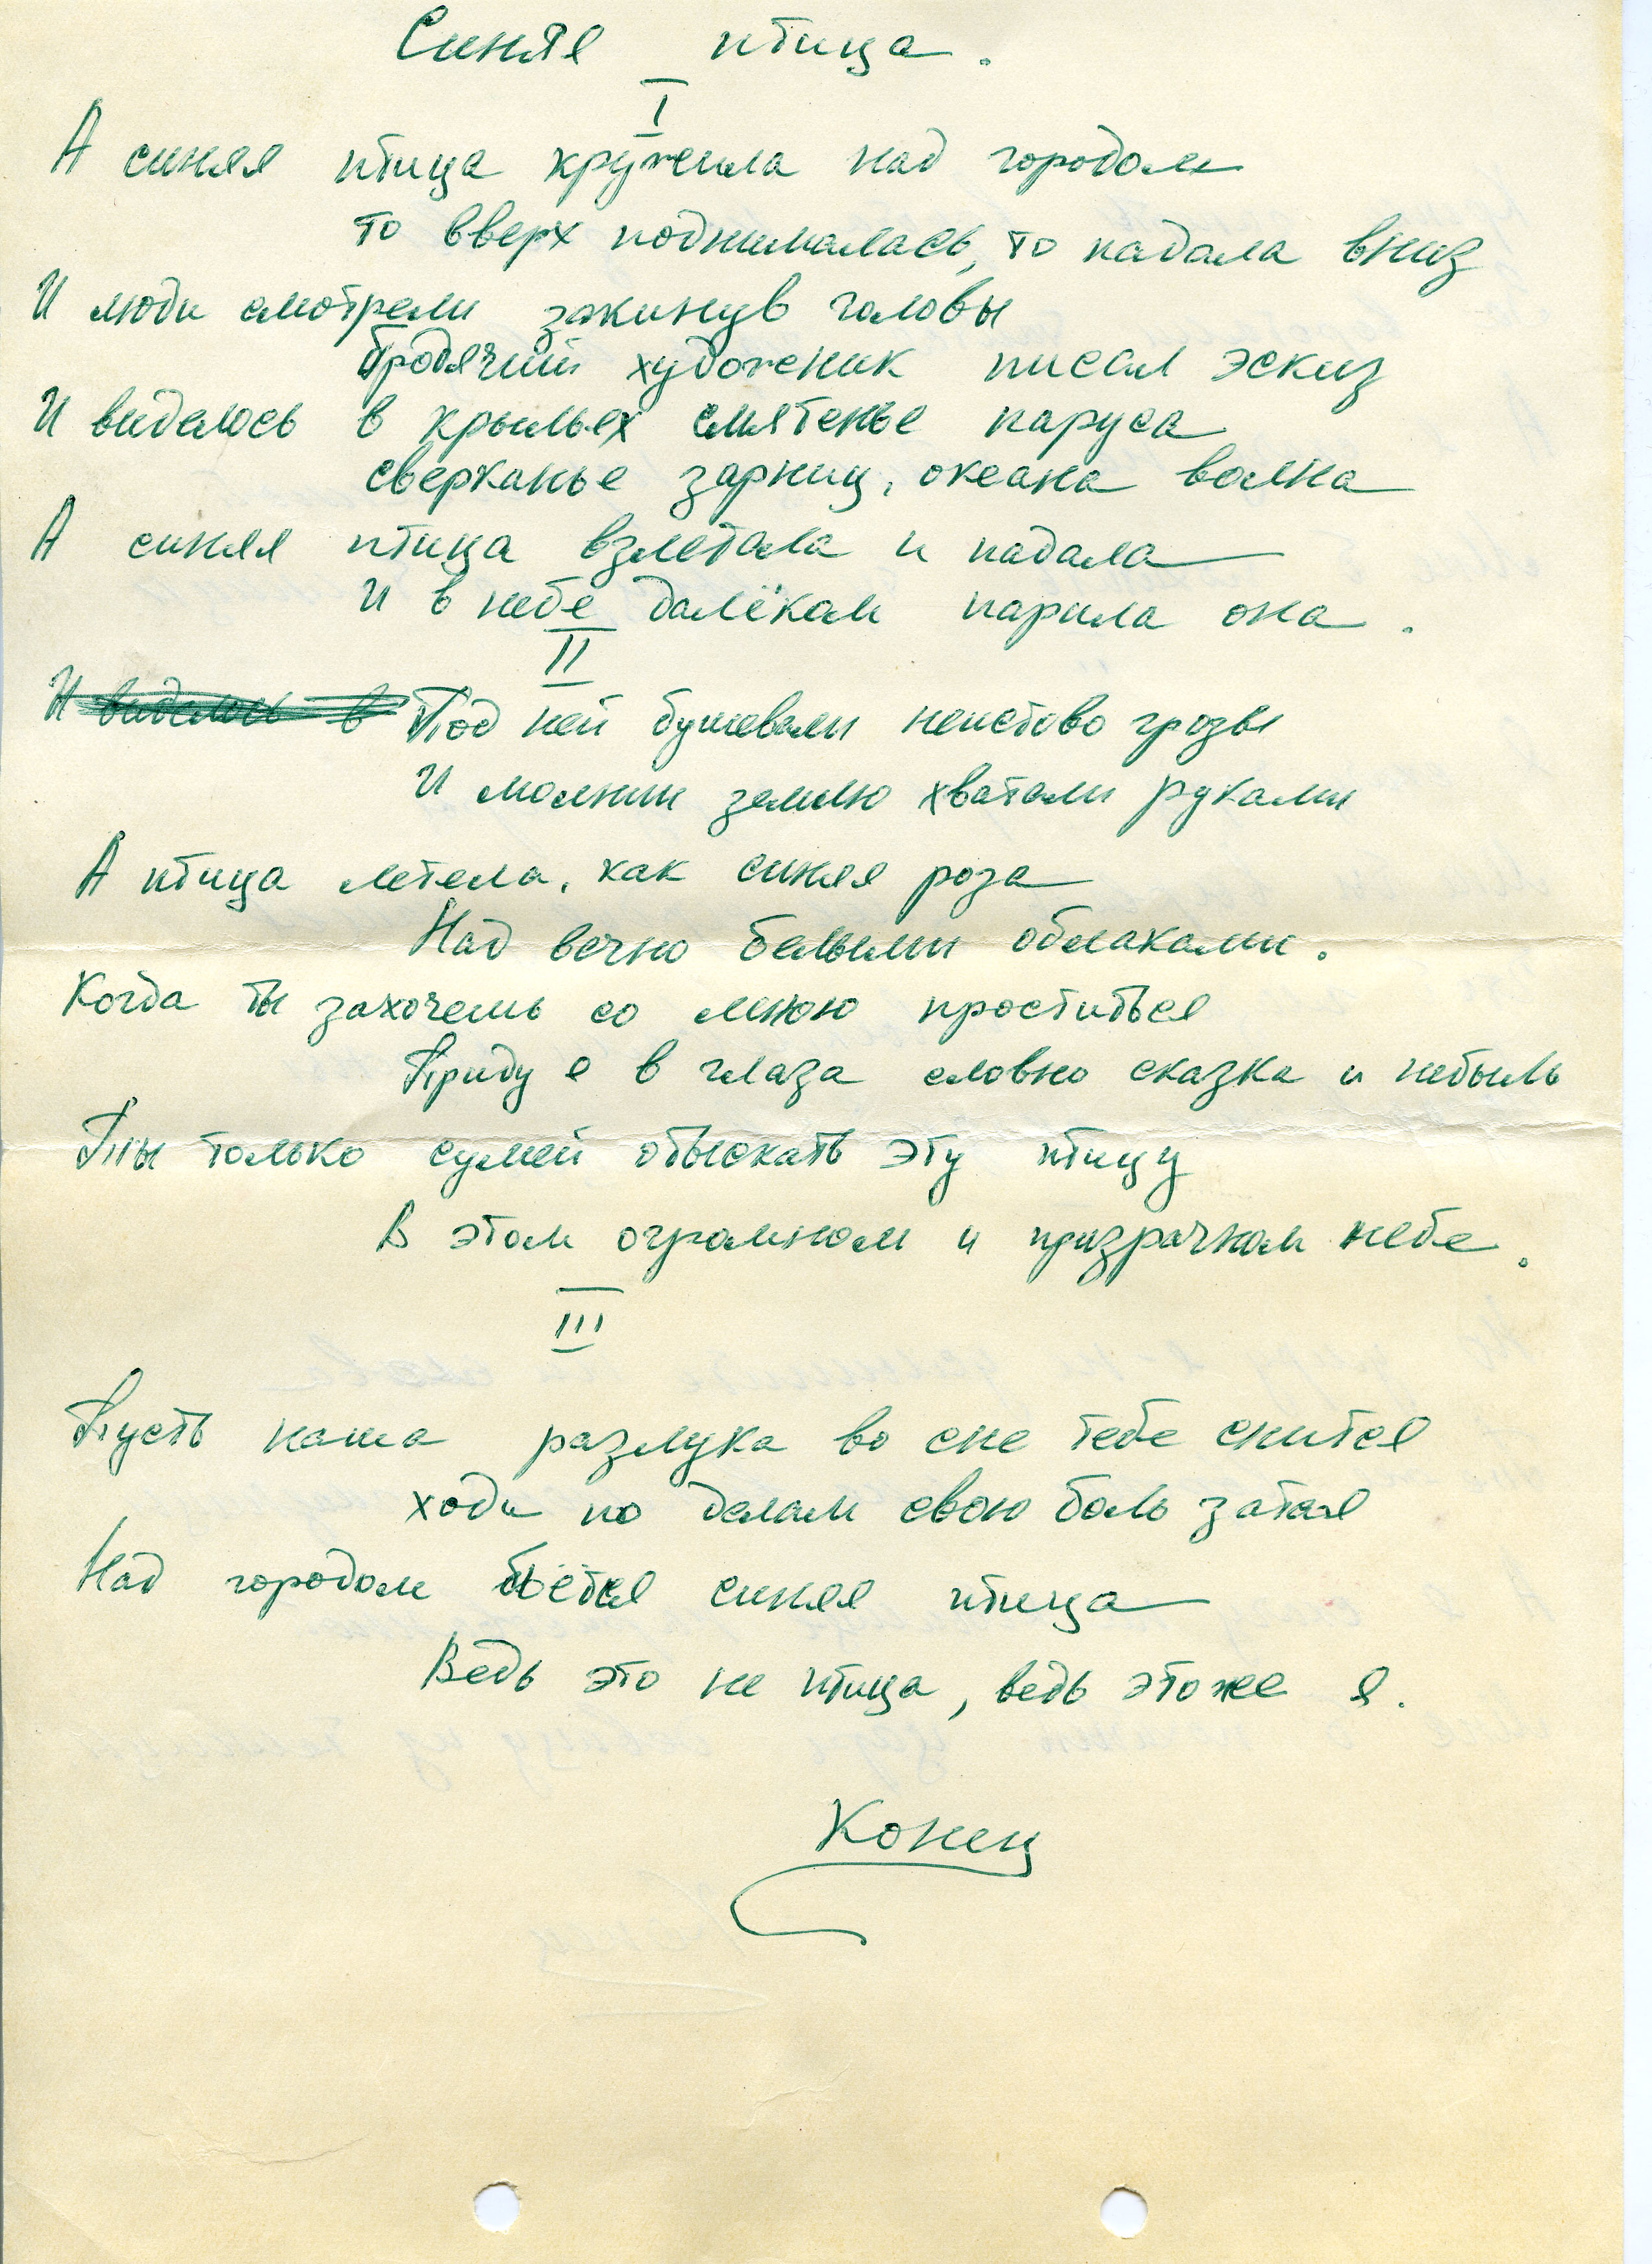 Синяя птица.
I
А синяя птица кружила над городом
то вверх поднималась, то падала вниз
И люди смотрели закинув головы
Бродячий художник писал эскиз
И виделось в крыльях смятенье паруса
сверканье зарниц, океана волна
А синяя птица взлетала и падала
И в небе далёком парила она.
II
И виделось в Под ней бушевали неистово грозы
И молнии землю хватали руками
А птица летела, как синяя роза
Над вечно белыми облаками.
Когда ты захочешь со мною проститься
Приду я в глаза словно сказка и небыль
Ты только сумей отыскать эту птицу
В этом огромном и призрачном небе.
III
Пусть наша разлука во сне тебе снится
ходи по делам свою боль затая
Над городом бьётся синяя птица
Ведь это не птица, ведь это же я.
Конец